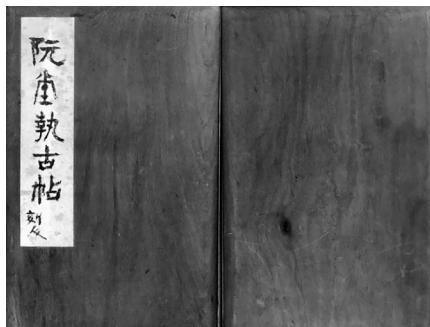 阮堂執古帖